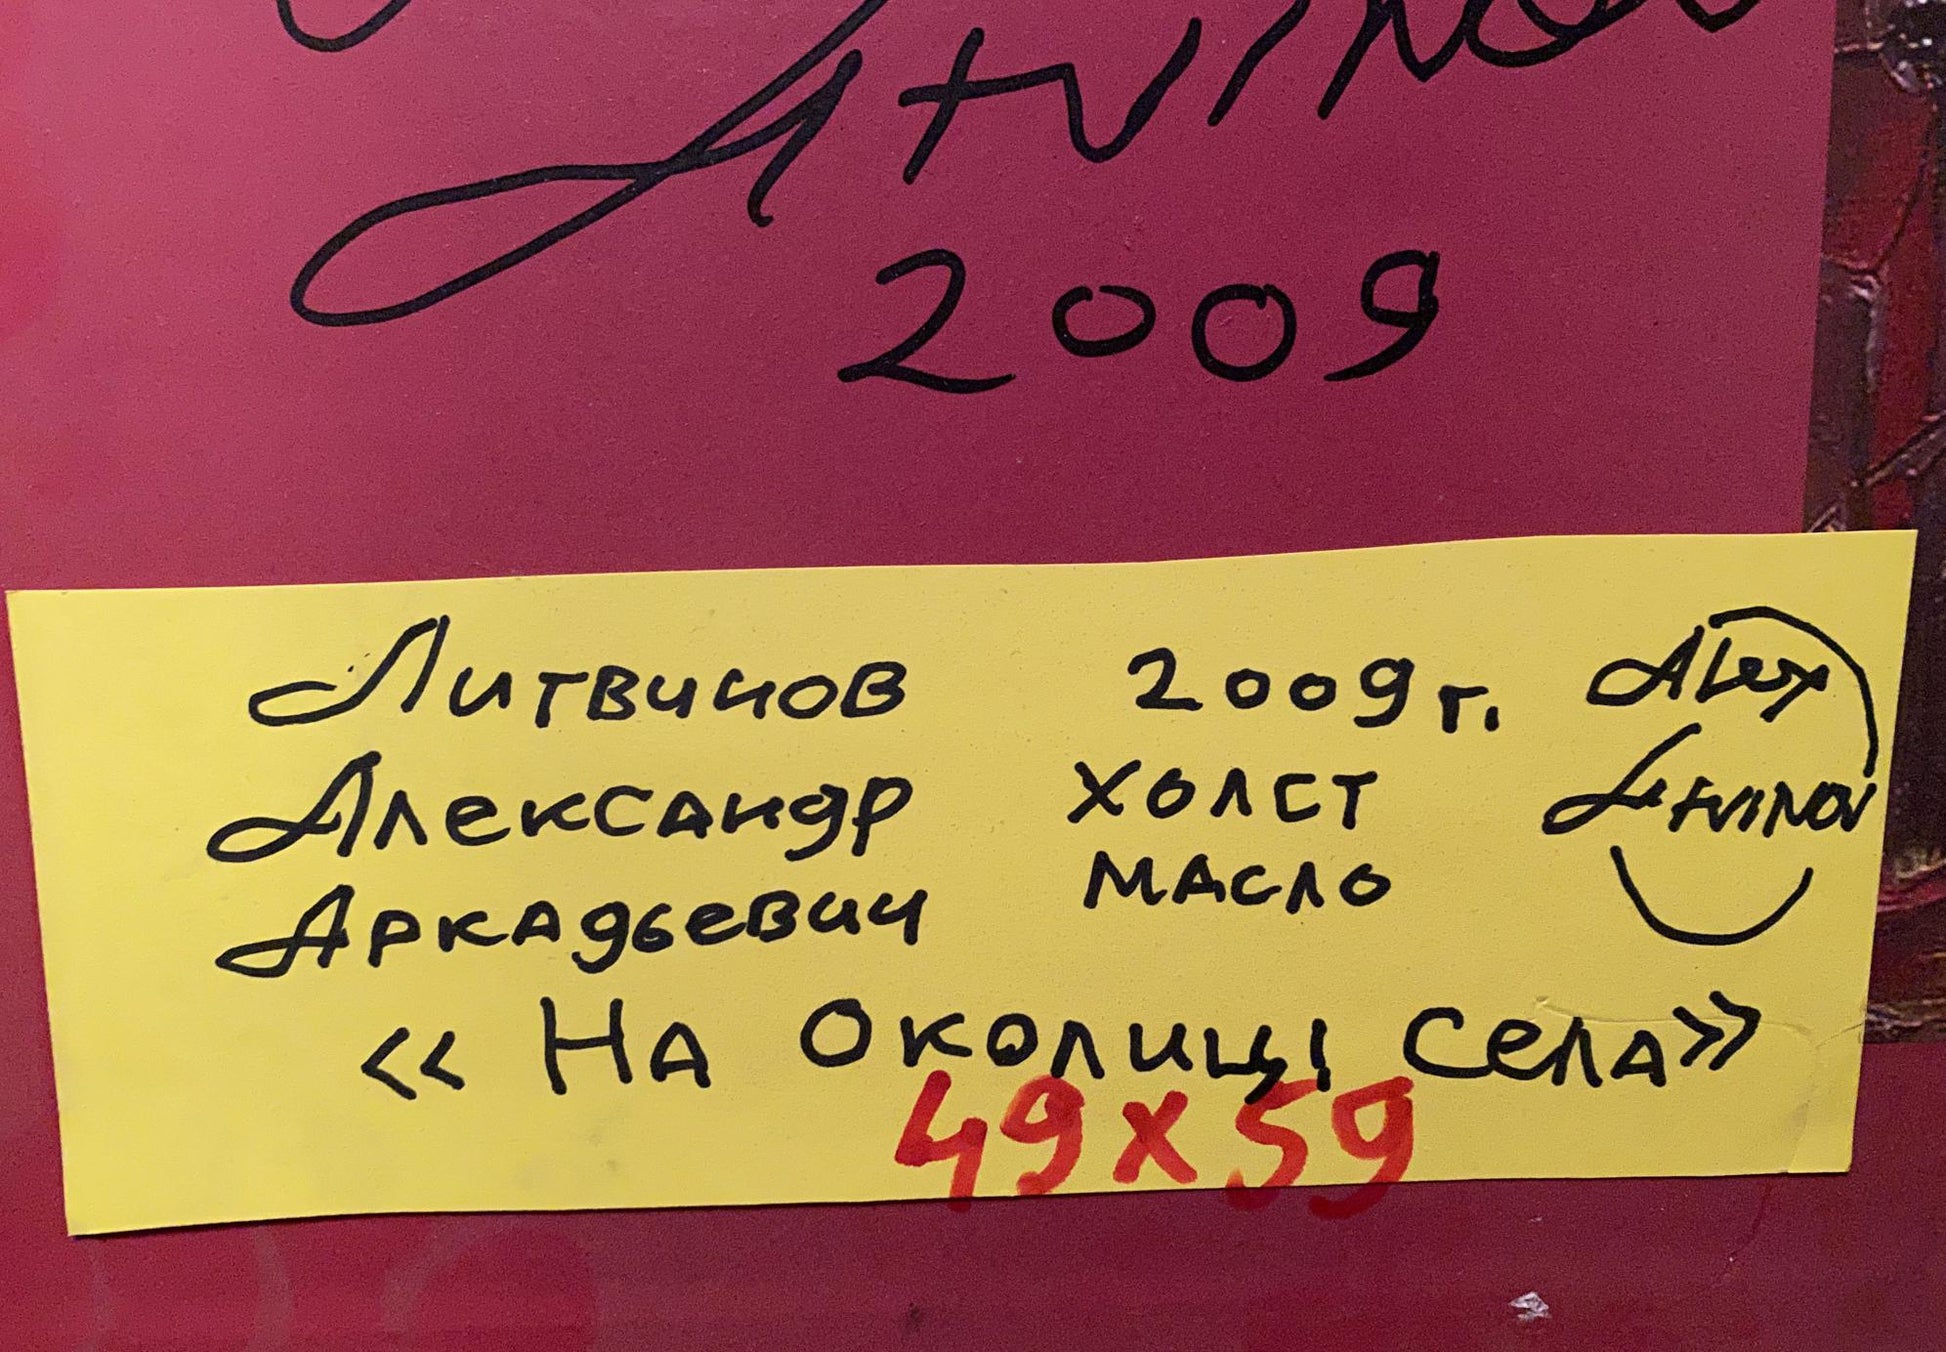 Litvinov
2009
Литвинов 2009г. Alex
Александр холст Litvinov
Аркадьевич масло
« На Околиці Села»
49x59